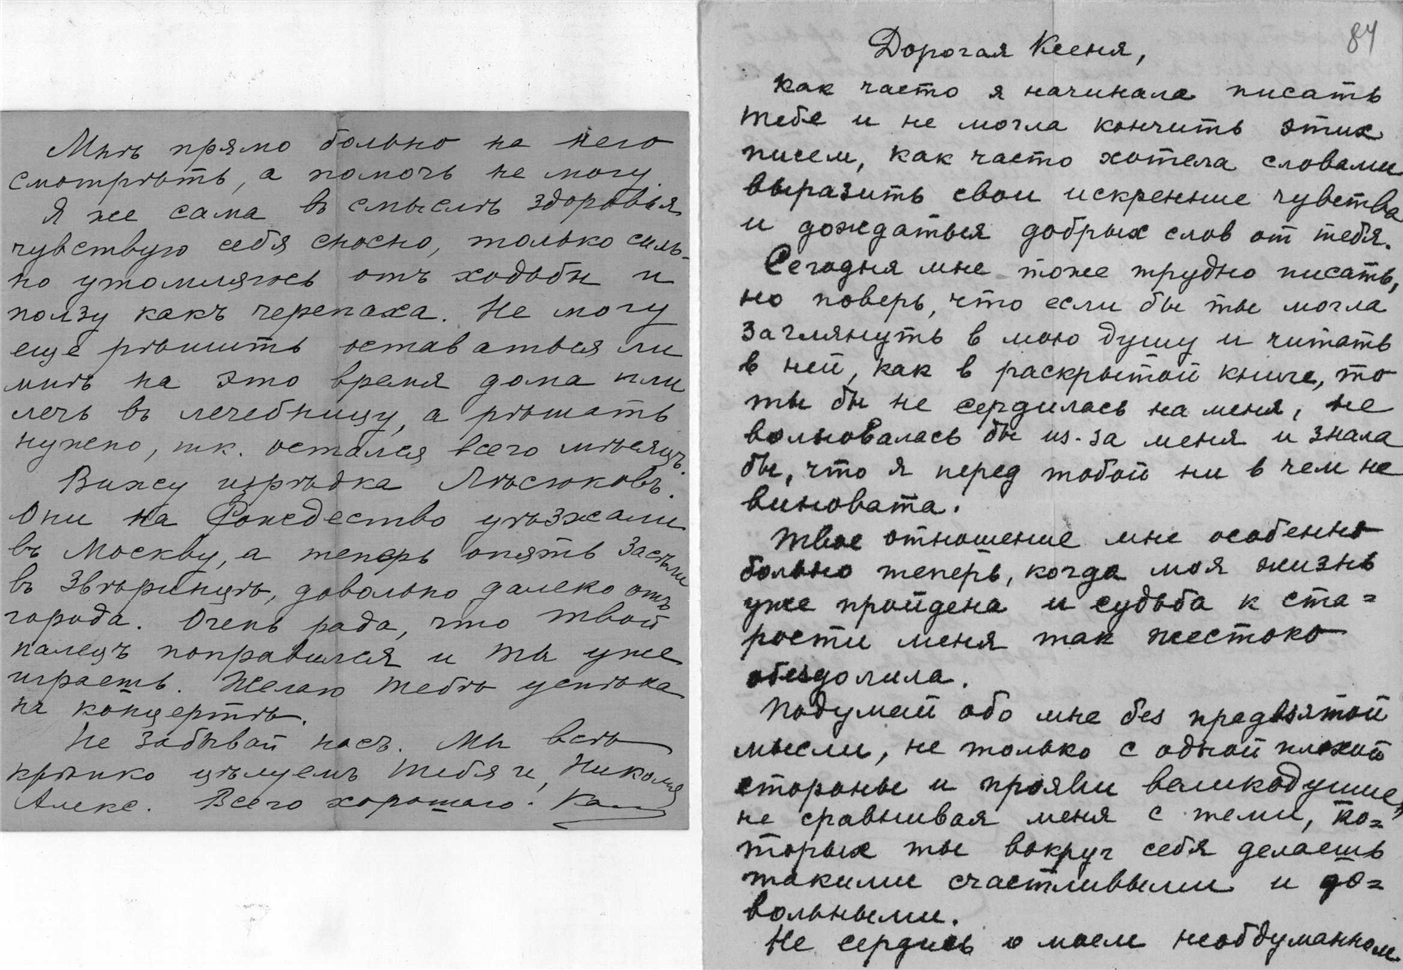 Мнѣ прямо больно на него
смотрѣть, а помочь не могу.
Я же сама въ смыслѣ здоровья
чувствую себя сносно, только силь-
но утомляюсь отъ ходьбы и
ползу какъ черепаха. Не могу
еще рѣшить оставаться ли
мнѣ на это время дома или
лечь въ лечебницу, а рѣшать
нужно, т.к. остался всего мѣсяцъ.
Вижу изрѣдка Лѣсюковъ.
Они на Рождество уѣзжали
въ Москву, а теперь опять засѣли
въ Звѣринцѣ, довольно далеко отъ
города. Очень рада, что твой
палецъ поправился и ты уже
играешь. Желаю тебѣ успѣха
на концертѣ.
Не забывай насъ. Мы всѣ
крѣпко цѣлуемъ тебя и Николая
Алекс. Всего хорошаго!
84
Дорогая Ксеня,
как часто я начинала писать
тебе и не могла кончить этих
писем, как часто хотела словами
выразить свои искренние чувства
и дождаться добрых слов от тебя.
Сегодня мне тоже трудно писать,
но поверь, что если бы ты могла
заглянуть в мою душу и читать
в ней, как в раскрытой книге, то
ты бы не сердилась на меня, не
волновалась бы из-за меня и знала
бы, что я перед тобой ни в чем не
виновата.
Твое отношение мне особенно
больно теперь, когда моя жизнь
уже пройдена и судьба к ста=
рости меня так жестоко
обездолила.
Подумай обо мне без предвзятой
мысли, не только с одной плохой
стороны и прояви великодушие,
не сравнивая меня с теми, ко=
торых ты вокруг себя делаешь
такими счастливыми и до=
вольными.
Не сердись о моем необдуманном